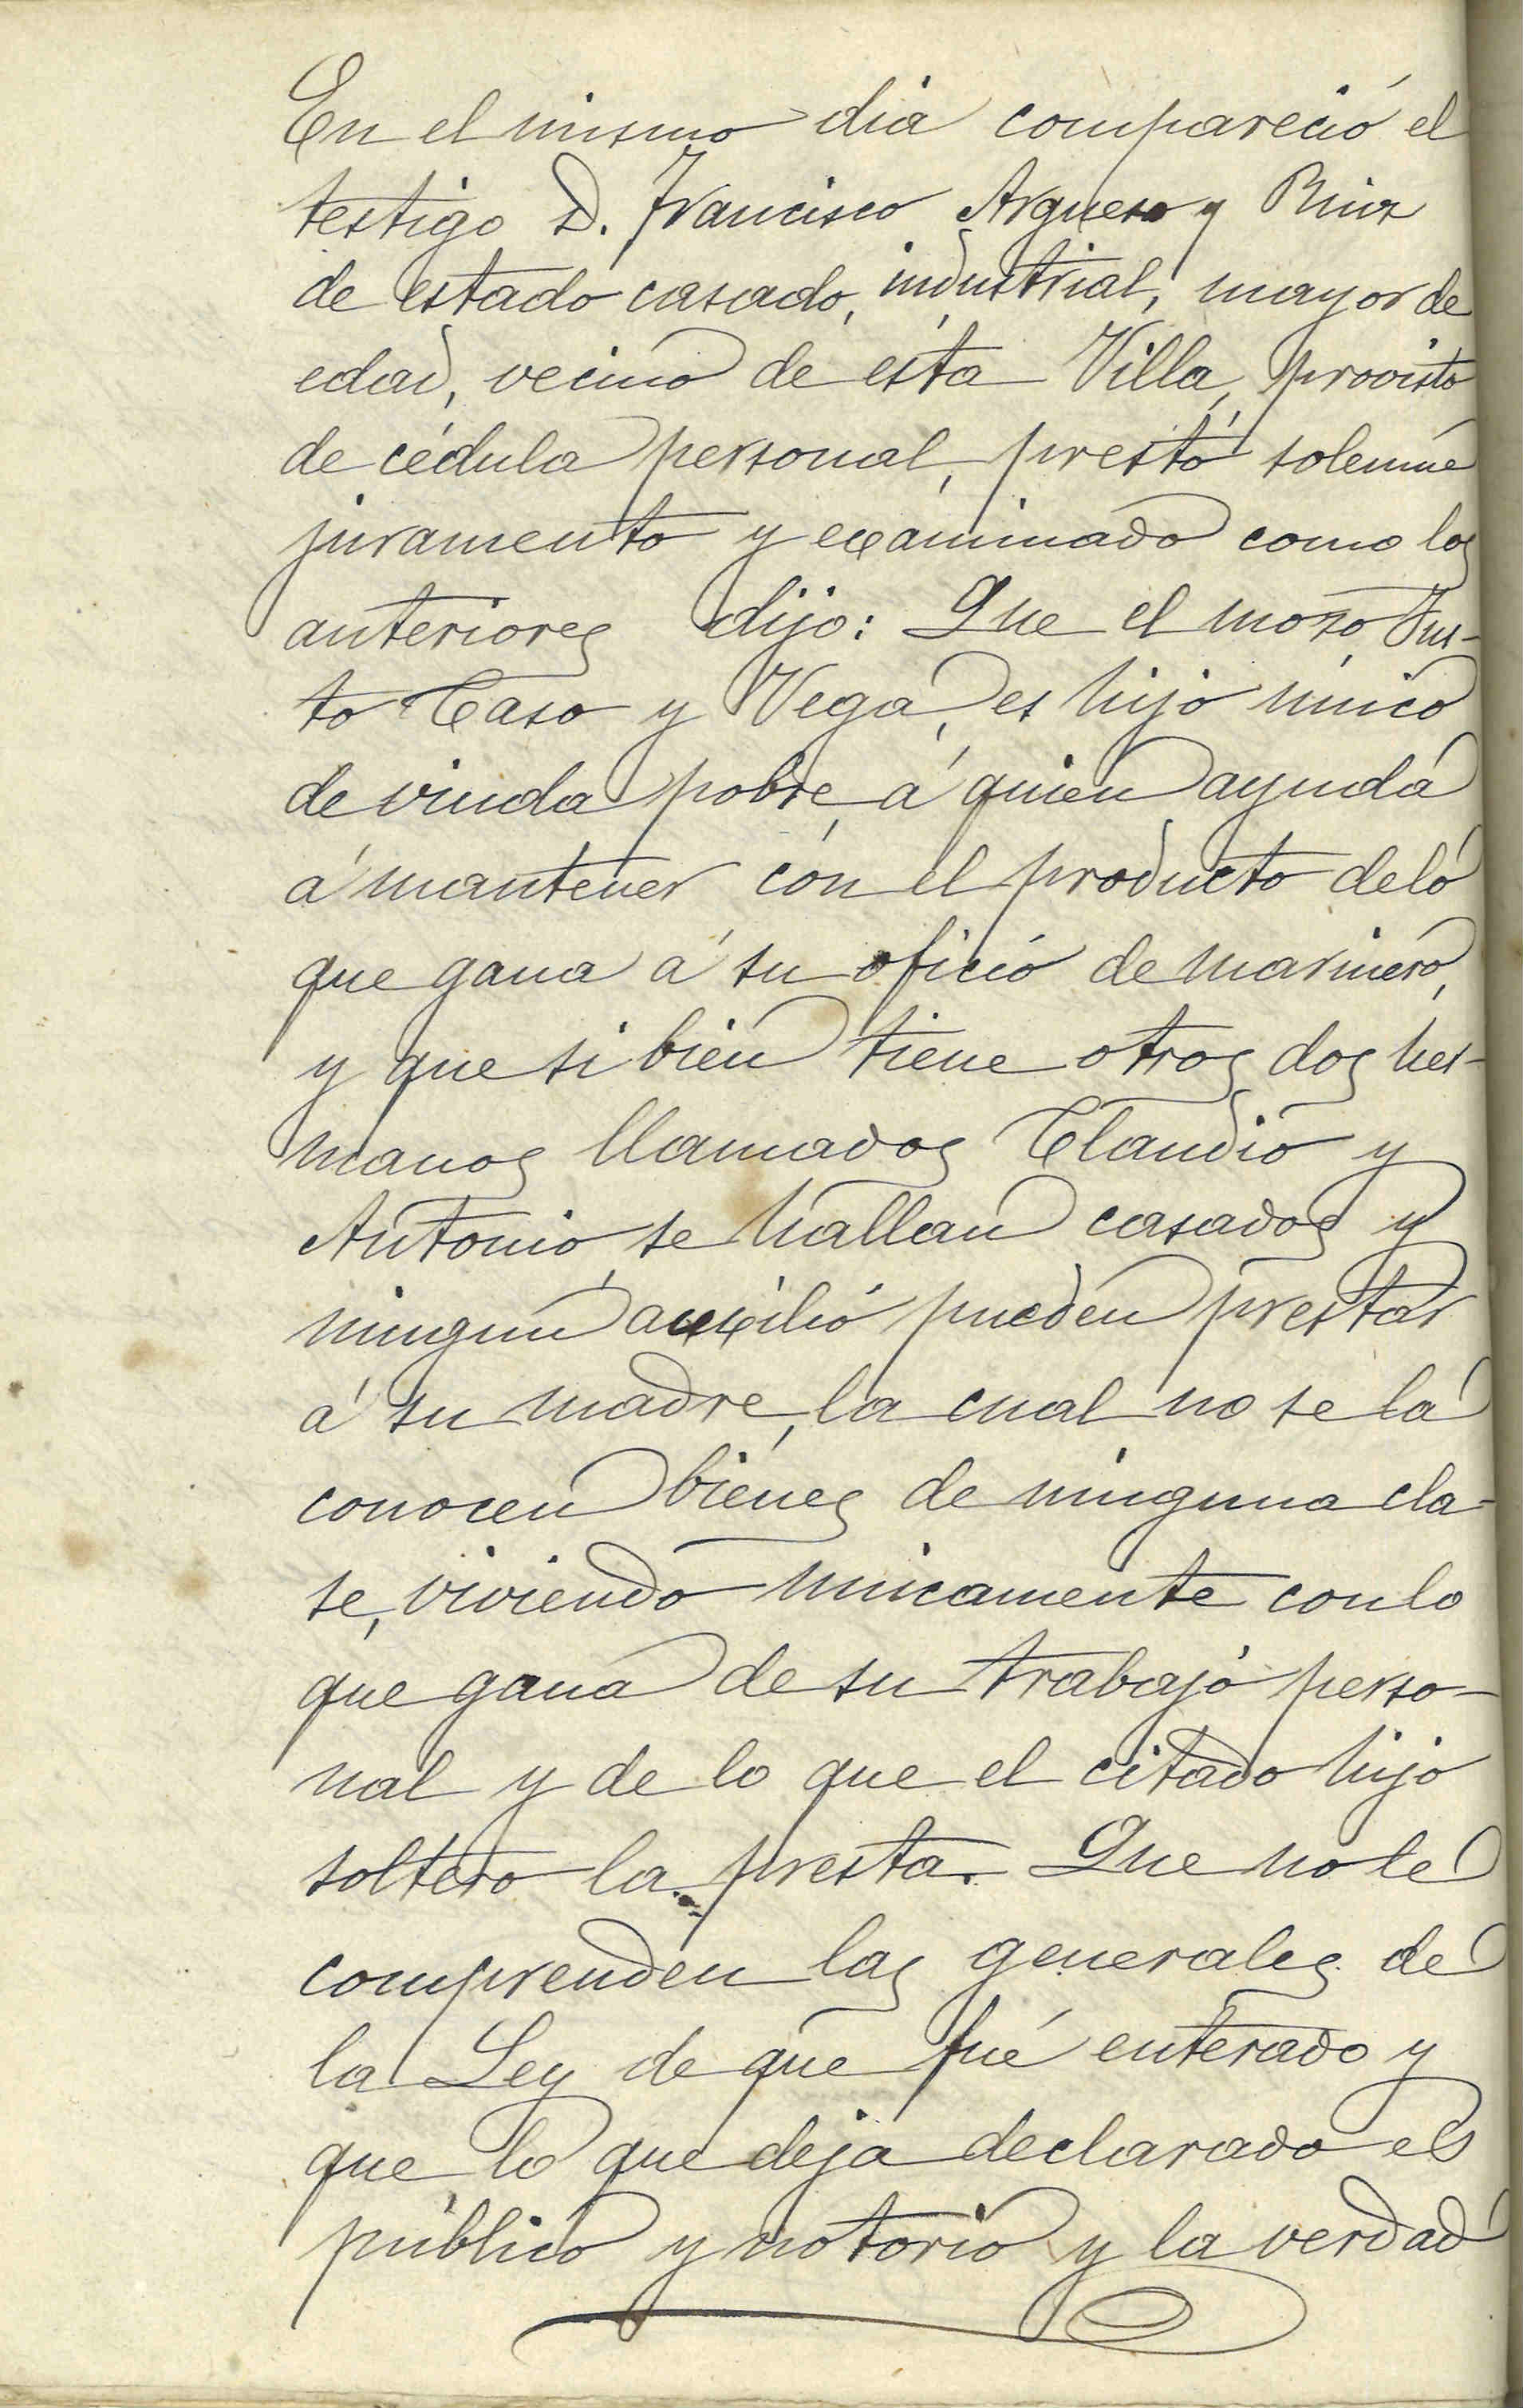 En el mismo dia compareció el
testigo D. Francisco Argueso y Ruiz
de estado casado, industrial, mayor de
edad, vecino de esta Villa, provisto
de cédula personal, prestó solemne
juramento y examinado como los
anteriores dijo: Que el mozo Jus-
to Caso y Vega, es hijo único
de viuda pobre, á quien ayuda
á mantener con el producto de lo
que gana á su oficio de marinero,
y que si bien tiene otros dos her-
manos llamados Claudio y
Antonio, se hallan casados y
ningun auxilio pueden prestar
á su madre, la cual no se la
conocen bienes de ninguna cla-
se, viviendo unicamente con lo
que gana de su trabajo perso-
nal y de lo que el citado hijo
soltero la presta. Que no le
comprenden las generales de
la Ley de que fué enterado y
que lo que deja declarado es
público y notorio y la verdad